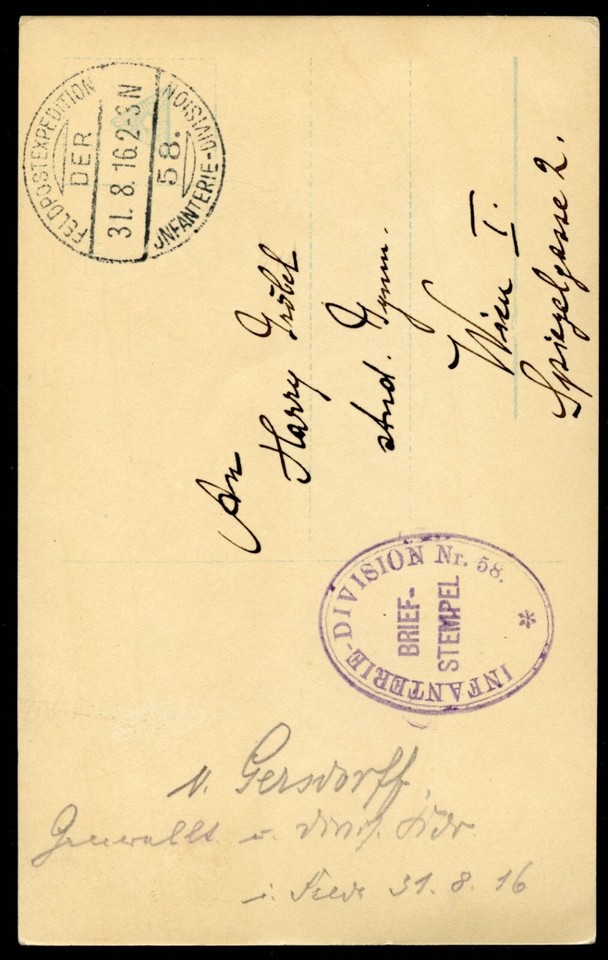 FELDPOSTEXPEDITION
DER
31.8.16.2-3N
58.
INFANTERIE-DIVISION
An
Harry Gröbel
stud. Gymn.
Wien I.
Spiegelgasse 2.
INFANTERIE-DIVISION Nr. 58.
BRIEF-
STEMPEL
v. Gersdorff,
Generallt. u. Div.
i. Felde 31. 8. 16